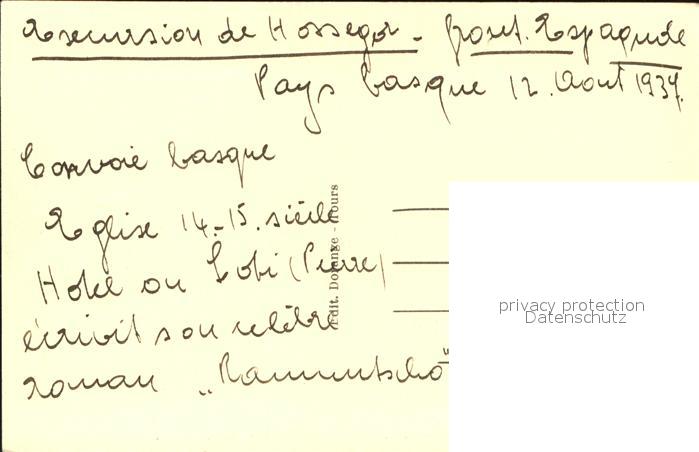 Excursion de Hossegor - front. Espagnole
Pays basque 12. Aout 1937.
basque
Eglise 14-15. siècle
Hotel ou Loti (Pierre)
écrivit son celèbre
roman „Ramuntscho"
Edit. Dorange - Tours
privacy protection
Datenschutz